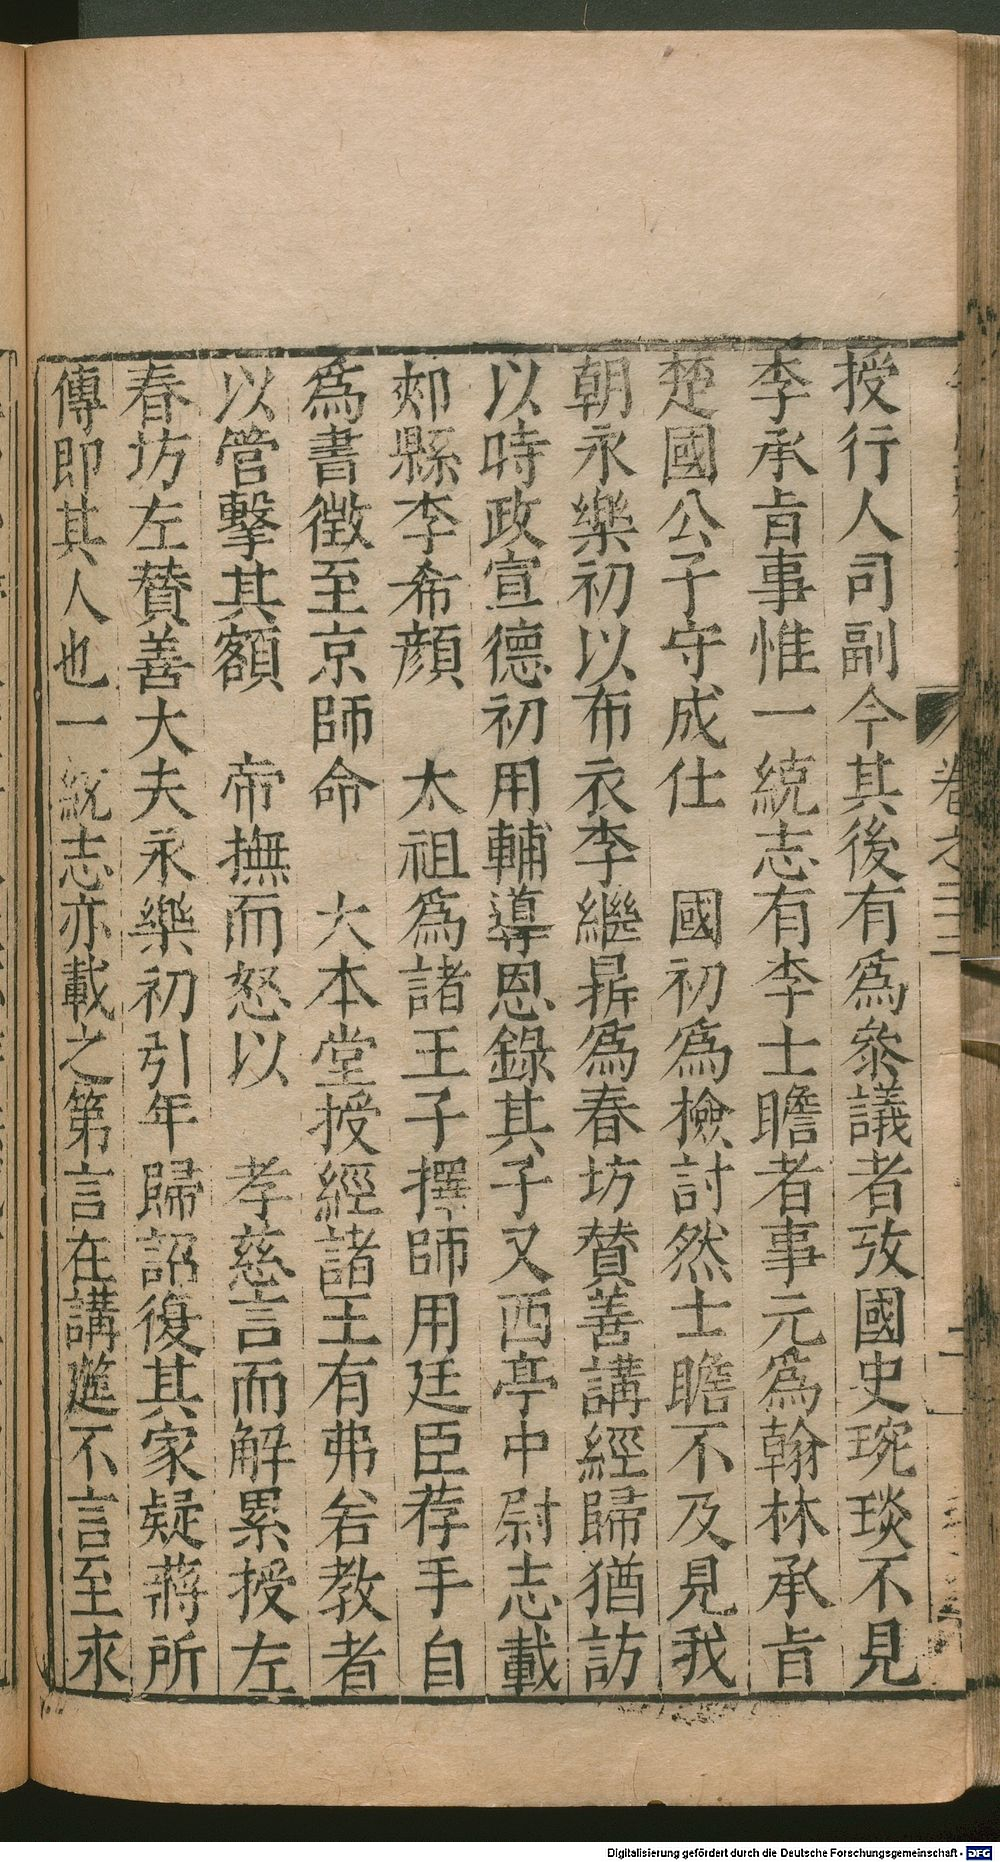 授行人司副今其後有爲叅議者攷國史琬琰不見
李承㫖事惟一統志有李士瞻者事元爲翰林承㫖
楚國公子守成仕 國初爲檢討然士瞻不及見我
朝永樂初以布衣李繼鼎爲春坊贊善講經歸猶訪
以時政宣德初用輔導恩錄其子又西亭中尉志載
郟縣李希顔 太祖爲諸王子擇師用廷臣荐手自
爲書徴至京師命 大本堂授經諸王有弗若教者
以管擊其額 帝撫而怒以 孝慈言而解累授左
春坊左贊善大夫永樂初引年歸詔復其家疑蔣所
傳即其人也一統志亦載之第言在講筵不言至永
卷之三
Digitalisierung gefördert durch die Deutsche Forschungsgemeinschaft - DFG